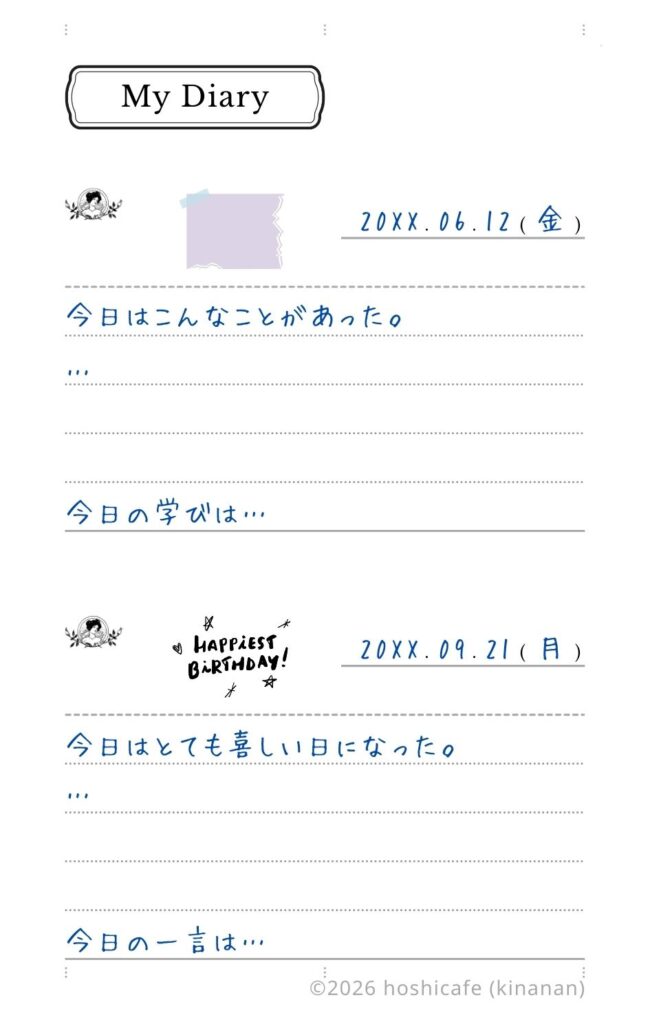 My Diary
20XX.06.12(金)
今日はこんなことがあった。
…
今日の学びは…
HAPPiEST
BiRTHDAY!
20XX.09.21(月)
今日はとても喜しい日になった。
…
今日の一言は…
©2026 hoshicafe (kinanan)